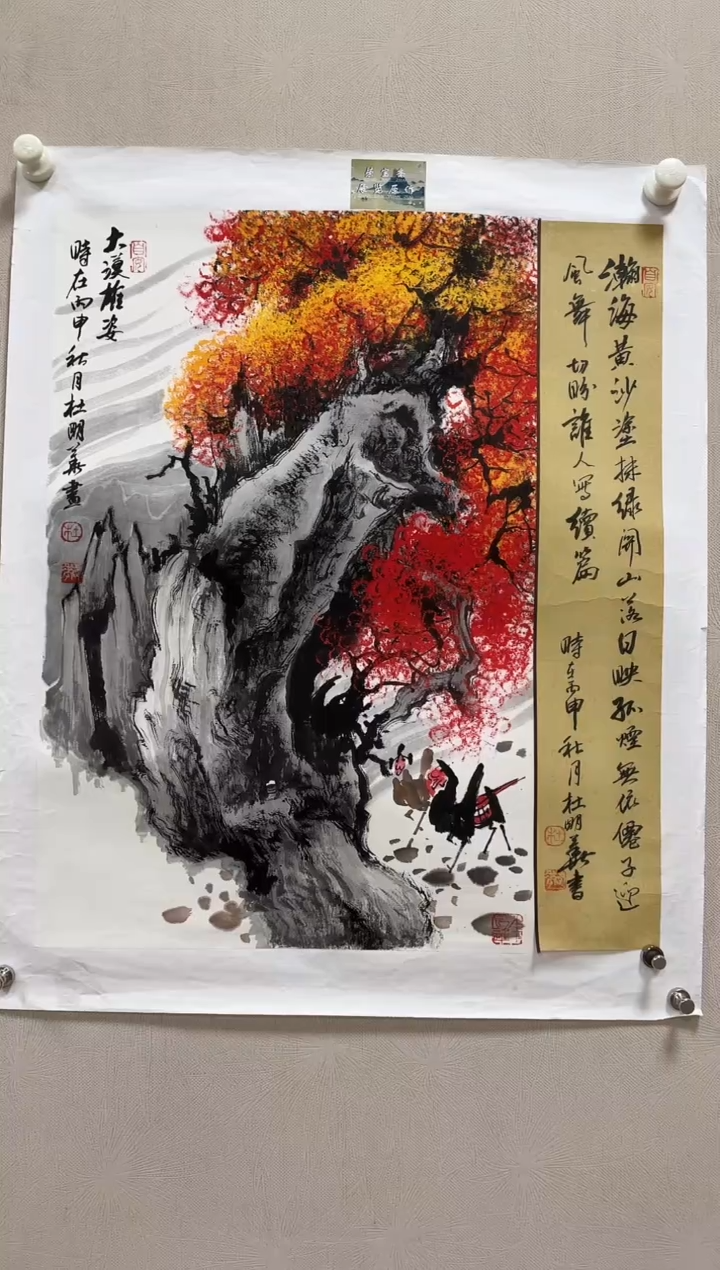 瀚海黄沙塗抹绿関山落日映孤煙無依僊子迎
風舞切盼誰人寫續篇
時在丙申秋月杜明義書
大漠雄姿
時在丙申秋月杜明義畫